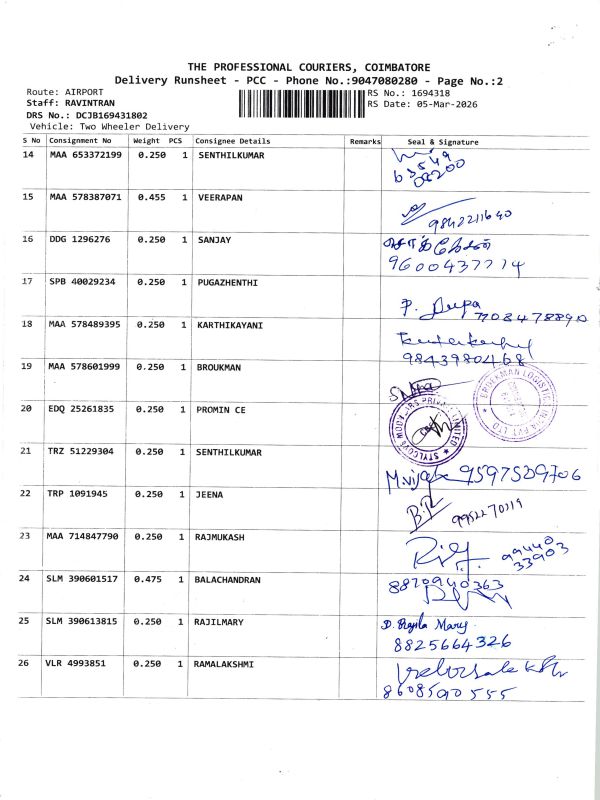 THE PROFESSIONAL COURIERS, COIMBATORE
Delivery Runsheet - PCC - Phone No.:9047080280 - Page No.:2
Route: AIRPORT
RS No.: 1694318
Staff: RAVINTRAN
RS Date: 05-Mar-2026
DRS No.: DCJB169431802
Vehicle: Two Wheeler Delivery
S No Consignment No Weight PCS Consignee Details Remarks Seal & Signature
14 MAA 653372199 0.250 1 SENTHILKUMAR
15 MAA 578387071 0.455 1 VEERAPAN
9842211640
16 DDG 1296276 0.250 1 SANJAY
9600437774
17 SPB 40029234 0.250 1 PUGAZHENTHI
P. Deepa
7708478890
18 MAA 578489395 0.250 1 KARTHIKAYANI
9843980468
19 MAA 578601999 0.250 1 BROUKMAN
20 EDQ 25261835 0.250 1 PROMIN CE
21 TRZ 51229304 0.250 1 SENTHILKUMAR
9597539706
22 TRP 1091945 0.250 1 JEENA
9952270219
23 MAA 714847790 0.250 1 RAJMUKASH
99440
33903
24 SLM 390601517 0.475 1 BALACHANDRAN
8870940363
25 SLM 390613815 0.250 1 RAJILMARY
D. Rajila Mary
8825664326
26 VLR 4993851 0.250 1 RAMALAKSHMI
8608590555